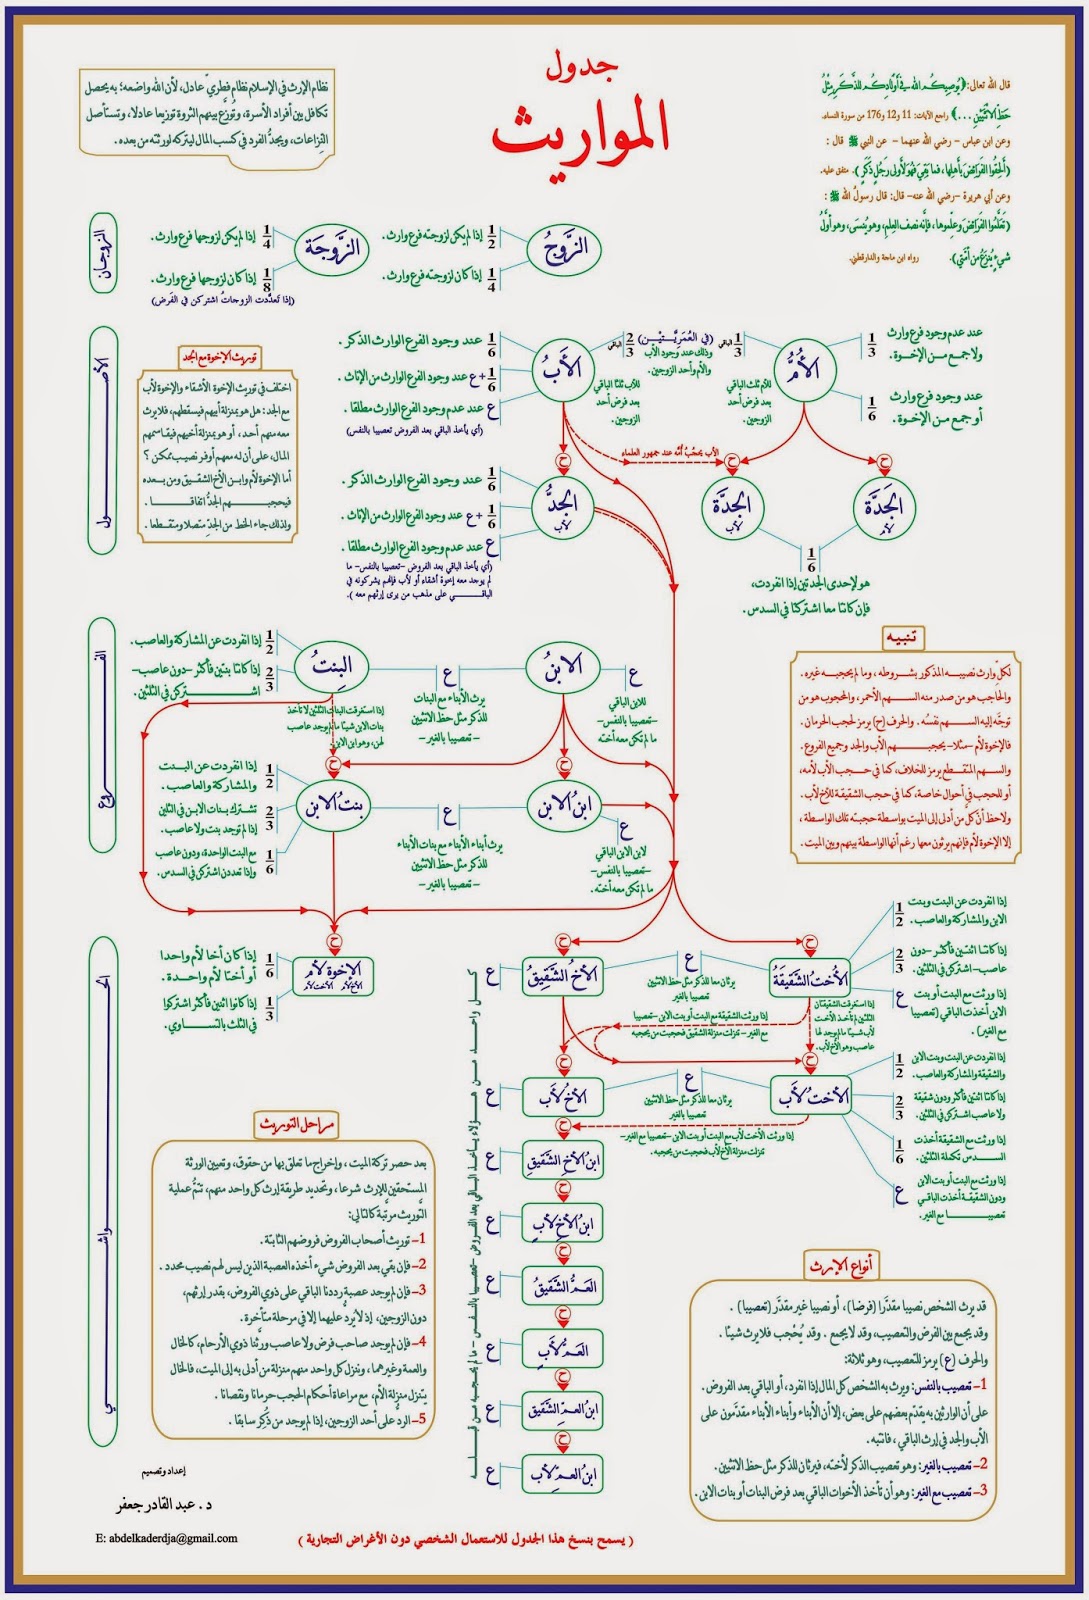 جدول
المواريث
قال الله تعالى: ﴿يُوصِيكُمُ اللهُ فِي أَوْلَادِكُمْ لِلذَّكَرِ مِثْلُ
حَظِّ الْأُنْثَيَيْنِ ...﴾ راجع الآيات: 11 و12 و176 من سورة النساء.
وعن ابن عباس – رضي الله عنهما – عن النبي ﷺ قال :
(أَلْحِقُوا الفَرَائِضَ بِأَهْلِهَا، فَمَا بَقِيَ فَهُوَ لِأَوْلَى رَجُلٍ ذَكَرٍ ). متفق عليه.
وعن أبي هريرة –رضي الله عنه– قال: قال رسولُ الله ﷺ :
(تَعَلَّمُوا الفَرَائِضَ وَعَلِّمُوها، فَإِنَّه نصف العِلمِ، وهو يُنسَى، وهو أوَّلُ
شيءٍ يُنزَعُ من أمَّتي). رواه ابن ماجة والدارقطني.
نظام الإرث في الإسلام نظام فطريّ عادل، لأن الله واضعه؛ به يحصل
تكافل بين أفراد الأسرة، وتُوزَّع بينهم الثروة توزيعا عادلا، وتُستأصل
النِّزاعات، ويجدُّ الفرد في كسب المال ليتركه لورثته من بعده.
الزوجان
الزَّوجُ
1/2 إذا لم يكن لزوجته فرع وارث.
1/4 إذا كان لزوجته فرع وارث.
الزَّوجَة
1/4 إذا لم يكن لزوجها فرع وارث.
1/8 إذا كان لزوجها فرع وارث.
(إذا تعدَّدت الزوجاتُ اشتركن في الفَرض)
الأصول
الأُمُّ
1/3 عند عدم وجود فرع وارث
ولا جمع من الإخوة.
1/6 عند وجود فرع وارث
أو جمع من الإخوة.
(في العُمَرِيَّـتَـيْن)
1/3 الباقي
للأم ثلث الباقي
بعد فرض أحد
الزوجين.
2/3 الباقي
وذلك عند وجود الأب
والأم وأحد الزوجين.
للأب ثلثا الباقي
بعد فرض أحد
الزوجين.
الأَبُ
1/6 عند وجود الفرع الوارث الذكر .
1/6 + ع عند وجود الفرع الوارث من الإناث .
ع عند عدم وجود الفرع الوارث مطلقا .
(أي يأخذ الباقي بعد الفروض تعصيبا بالنفس)
الأب يحجُبُ أمَّه عند جمهور العلماء
ح
ح
ح
الجَدُّ
لأب
1/6 عند وجود الفرع الوارث الذكر .
1/6 + ع عند وجود الفرع الوارث من الإناث .
ع عند عدم وجود الفرع الوارث مطلقا .
(أي يأخذ الباقي بعد الفروض –تعصيبا بالنفس– ما
لم يوجد معه إخوة أشقاء أو لأب فإنهم يشركونه في
الباقي على مذهب من يرى إرثهم معه ).
الجَدَّة
لأب
الجَدَّة
لأم
1/6
هو لإحدى الجدتين إذا انفردت،
فإن كانتا معا اشتركتا في السدس.
توريث الإخوة مع الجد
اختلف في توريث الإخوة الأشقاء والإخوة لأب
مع الجد: هل هو بمنزلة أبيهم فيسقطهم، فلا يرث
معه منهم أحد، أو هو بمنزلة أخيهم فيقاسمهم
المال، على أن له معهم أوفر نصيب ممكن ؟
أما الإخوة لأم وابن الأخ الشقيق ومن بعده
فيحجبهم الجدُّ اتفاقا .
ولذلك جاء الخط من الجدِّ متصلا ومتقطعا .
تنبيه
لكلّ وارث نصيبه المذكور بشروطه، وما لم يحجبه غيره.
والحاجب هو من صدر منه السهم الأحمر، والمحجوب هو من
توجّه إليه السهم نفسُه . والحرف (ح) يرمز لحجب الحرمان .
فالإخوة لأم –مثلا– يحجبهم الأب والجد وجميع الفروع.
والسهم المتقطع يرمز للخلاف، كما في حجب الأب لأمه،
أو للحجب في أحوال خاصة، كما في حجب الشقيقة للأخ لأب.
ولاحظ أنّ كل من أدلى إلى الميت بواسطة حجبته تلك الواسطة ،
إلا الإخوة لأم فإنهم يرثون معها رغم أنها الواسطة بينهم وبين الميت.
الفروع
الابنُ
ع
للابن الباقي
–تعصيبا بالنفس–
ما لم تكن معه أخته
ع
يرث الأبناء مع البنات
للذكر مثل حظ الانثيين
–تعصيبا بالغير–
البِنتُ
1/2 إذا انفردت عن المشاركة والعاصب.
2/3 إذا كانتا بنتين فأكثر –دون عاصب–
اشتركن في الثلثين.
إذا استغرقت البنات الثلثين لا تأخذ
بنات الابن شيئا ما لم يوجد عاصب
لهن، وهو ابن الابن
ح
ح
ابنُ الابن
ع
لابن الابن الباقي
–تعصيبا بالنفس–
ما لم تكن معه أخته.
ع
يرث أبناء الأبناء مع بنات الأبناء
للذكر مثل حظ الانثيين
–تعصيبا بالغير–
بنتُ الابن
1/2 إذا انفردت عن البنت
والمشاركة والعاصب.
2/3 تشترك بنات الابن في الثلثين
إذا لم توجد بنت ولا عاصب.
1/6 مع البنت الواحدة، ودون عاصب
وإذا تعددن اشتركن في السدس.
الحواشي
ح
ح
ح
الأُختُ الشَّقيقةُ
1/2 إذا انفردت عن البنت وبنت
الابن والمشاركة والعاصب.
2/3 إذا كانتا اثنتين فأكثر –دون
عاصب– اشتركن في الثلثين.
ع إذا ورثت مع البنت أو بنت
الابن أخذت الباقي (تعصيبا
مع الغير) .
ع
يرثان معا للذكر مثل حظ الانثيين
تعصيبا بالغير
الأخُ الشَّقِيقُ
ع
إذا ورثت الشقيقة مع البنت أو بنت الابن –تعصيبا
مع الغير– تنزلت منزلة الشقيق فحجبت من يحجبه
إذا استغرقت الشقيقتان
الثلثين لم تأخذ الأخت
لأب شيئا ما لم يوجد لها
عاصب وهو الأخ لأب.
الإخوة لأم
الأخ لأم الأخت لأم
1/6 إذا كان أخا لأم واحدا
أو أختا لأم واحدة.
1/3 إذا كانوا اثنين فأكثر اشتركوا
في الثلث بالتساوي.
ح
ح
الأختُ لأَب
1/2 إذا انفردت عن البنت وبنت الابن
والشقيقة والمشاركة والعاصب.
2/3 إذا كانتا اثنتين فأكثر ودون شقيقة
ولا عاصب اشتركن في الثلثين.
1/6 إذا ورثت مع الشقيقة أخذت
السدس تكملة الثلثين.
ع إذا ورثت مع البنت أو بنت الابن
ودون الشقيقة أخذت الباقي
تعصيبا مع الغير.
ع
يرثان معا للذكر مثل حظ الانثيين
تعصيبا بالغير
الأخُ لأَب
ع
إذا ورثت الأخت لأب مع البنت أو بنت الابن –تعصيبا مع الغير–
تنزلت منزلة الأخ لأب فحجبت من يحجبه.
ح
ابنُ الأخِ الشَّقيقِ
ع
ح
ابنُ الأخِ لأبٍ
ع
ح
العَمُّ الشَّقيقُ
ع
ح
العَمُّ لأبٍ
ع
ح
ابنُ العمِّ الشَّقيق
ع
ح
ابنُ العمِّ لأب
ع
كل واحد من هؤلاء يأخذ الباقي بعد الفروض –تعصيبا بالنفس– ما لم يحجبه من قبله
مراحل التوريث
بعد حصر تركة الميت ، وإخراج ما تعلق بها من حقوق، وتعيين الورثة
المستحقين للإرث شرعا، وتحديد طريقة إرث كل واحد منهم، تتمُّ عملية
التَّوريث مرتَّبة كالتالي:
1– توريث أصحاب الفروض فروضهم الثابتة.
2– فإن بقي بعد الفروض شيء أخذه العصبة الذين ليس لهم نصيب محدد .
3– فإن لم يوجد عصبة رددنا الباقي على ذوي الفروض، بقدر إرثهم،
دون الزوجين، إذ لا يُردُّ عليهما إلا في مرحلة متأخرة.
4– فإن لم يوجد صاحب فرض ولا عاصب ورَّثنا ذوي الأرحام، كالخال
والعمة وغيرهما، وننزل كل واحد منهم منزلة من أدلى به إلى الميت، فالخال
يتنزل منزلة الأم، مع مراعاة أحكام الحجب حرمانا ونقصانا .
5– الردُّ على أحد الزوجين، إذا لم يوجد من ذُكر سابقا .
أنواع الإرث
قد يرث الشخص نصيبا مقدَّرا (فرضا)، أو نصيبا غير مقدَّر (تعصيبا) .
وقد يجمع بين الفرض والتعصيب، وقد لا يجمع . وقد يُحْجب فلا يرث شيئا .
والحرف (ع) يرمز للتعصيب، وهو ثلاثة:
1– تعصيب بالنفس: ويرث به الشخص كل المال إذا انفرد، أو الباقي بعد الفروض.
على أن الوارثين به يقدّم بعضهم على بعض، إلا أن الأبناء وأبناء الأبناء مقدَّمون على
الأب والجد في إرث الباقي، فانتبه.
2– تعصيب بالغير: وهو تعصيب الذكر لأخته، فيرثان للذكر مثل حظ الانثيين.
3– تعصيب مع الغير: وهو أن تأخذ الأخوات الباقي بعد فرض البنات أو بنات الابن.
إعداد وتصميم
د . عبد القادر جعفر
E: abdelkaderdja@gmail.com
( يسمح بنسخ هذا الجدول للاستعمال الشخصي دون الأغراض التجارية )